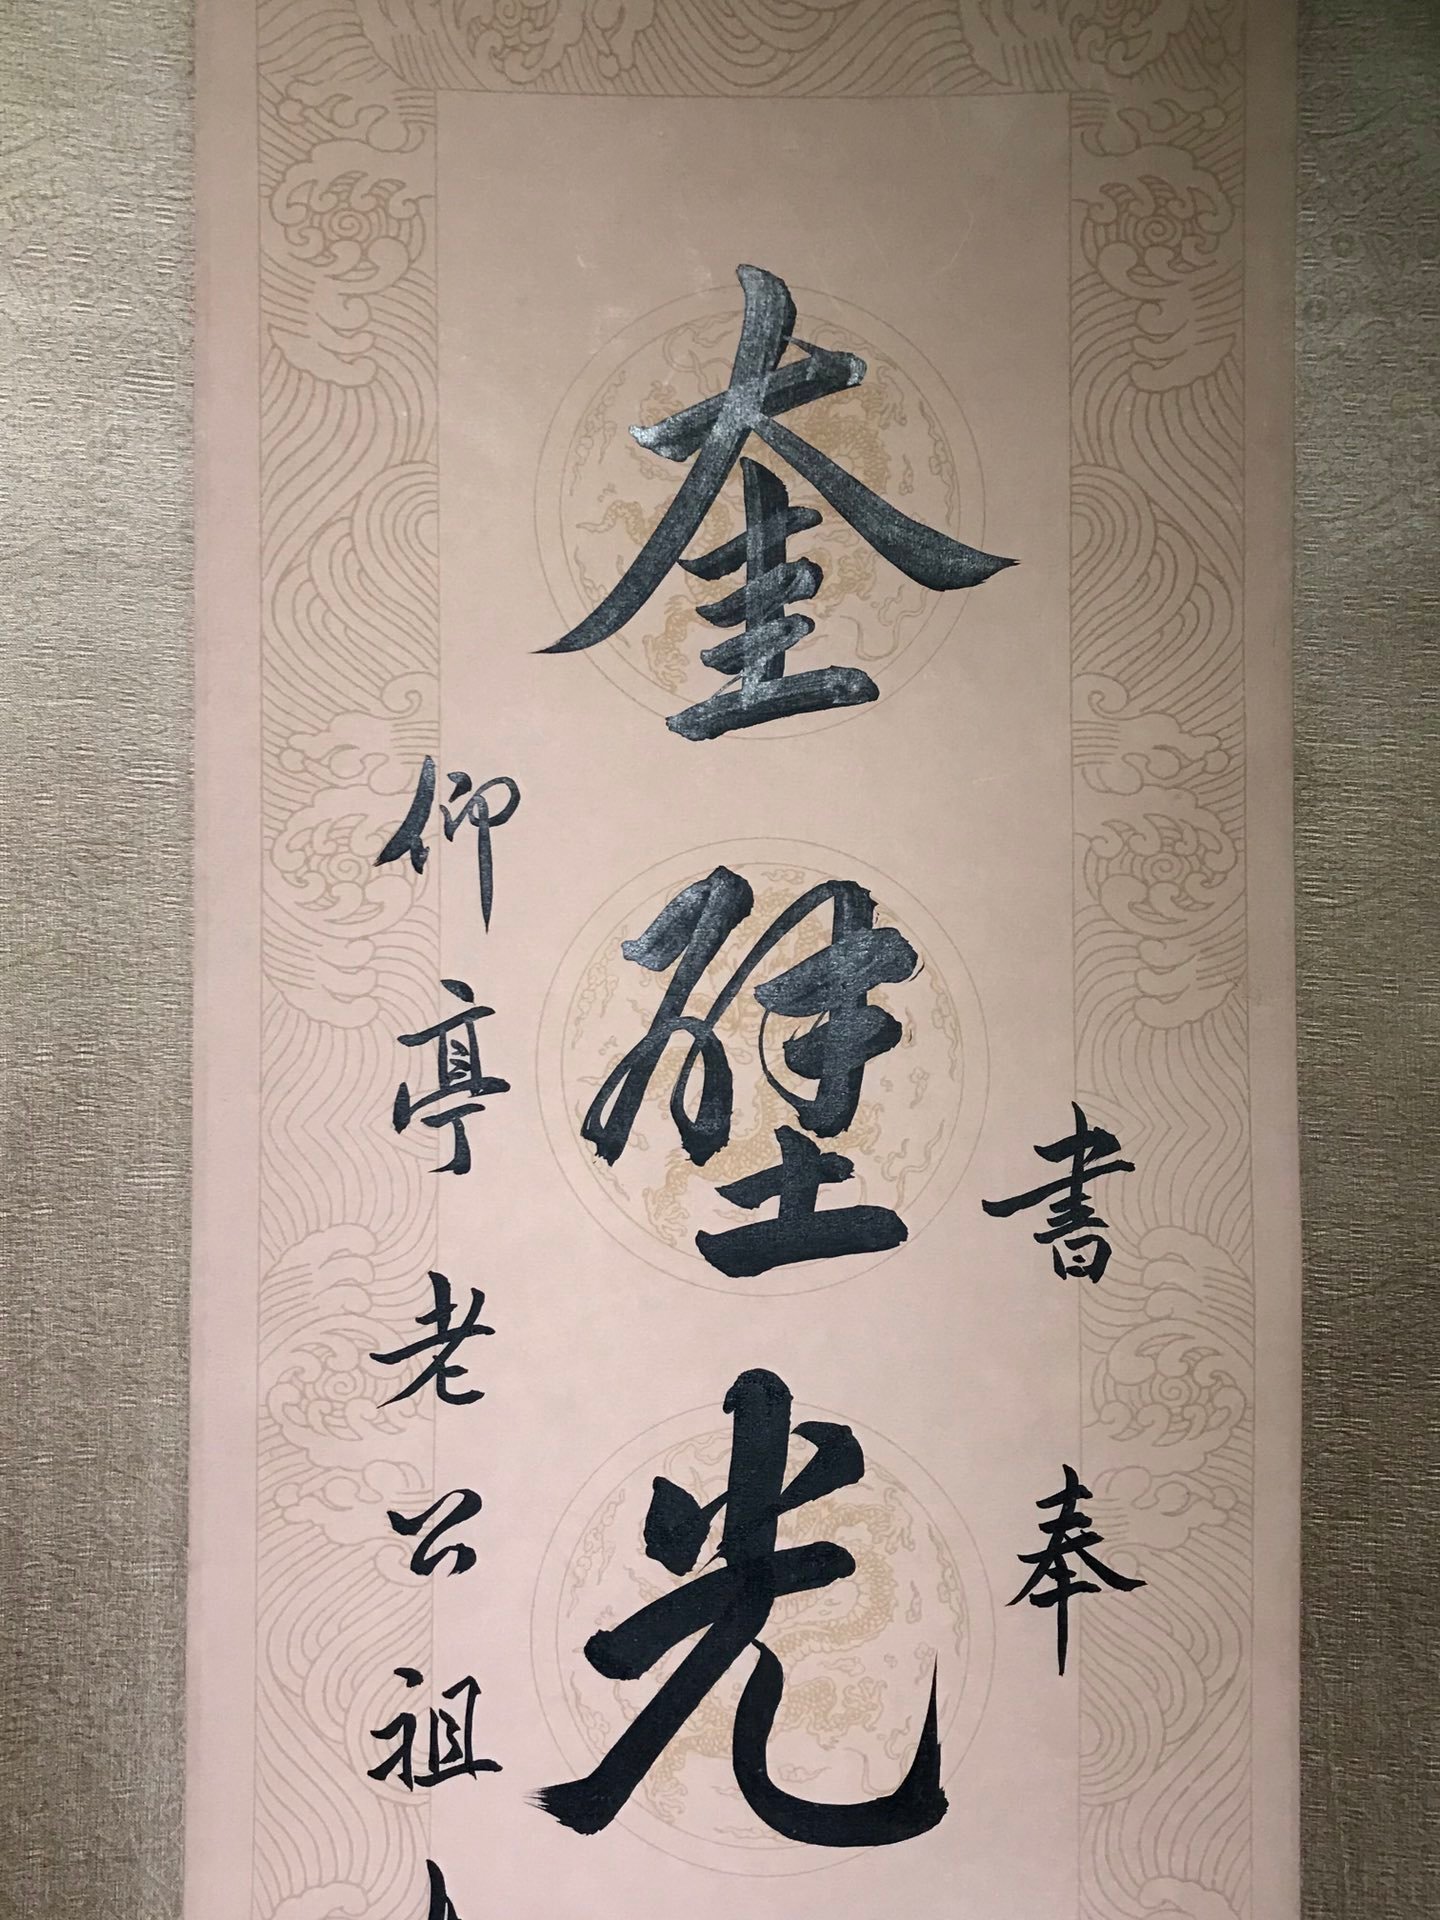 書奉
奎壁光
仰亭老公祖